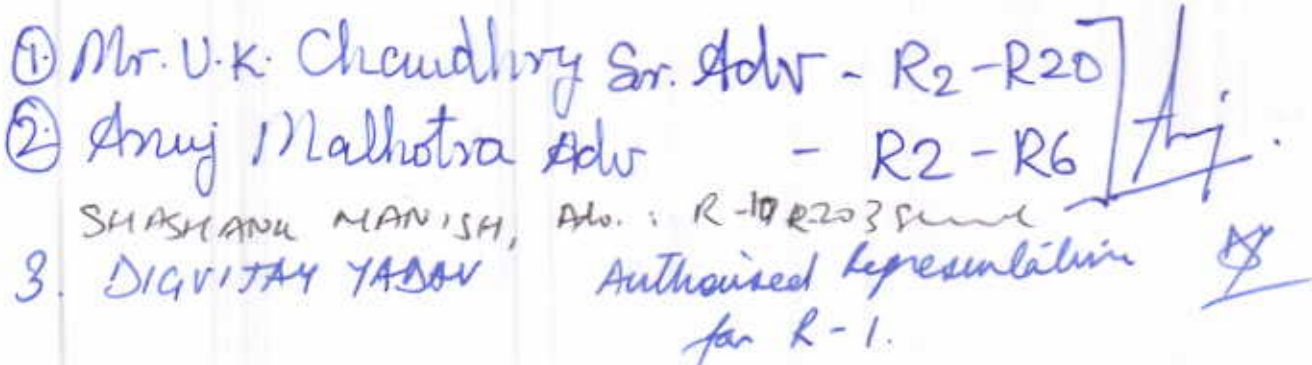 ① Mr. U.K. Chaudhry Sr. Adv - R2-R20
② Anuj Malhotra Adv - R2-R6
SHASHANK MANISH, Adv. :
3. DIGVIJAY YADAV Authorised Representative
for R-1.